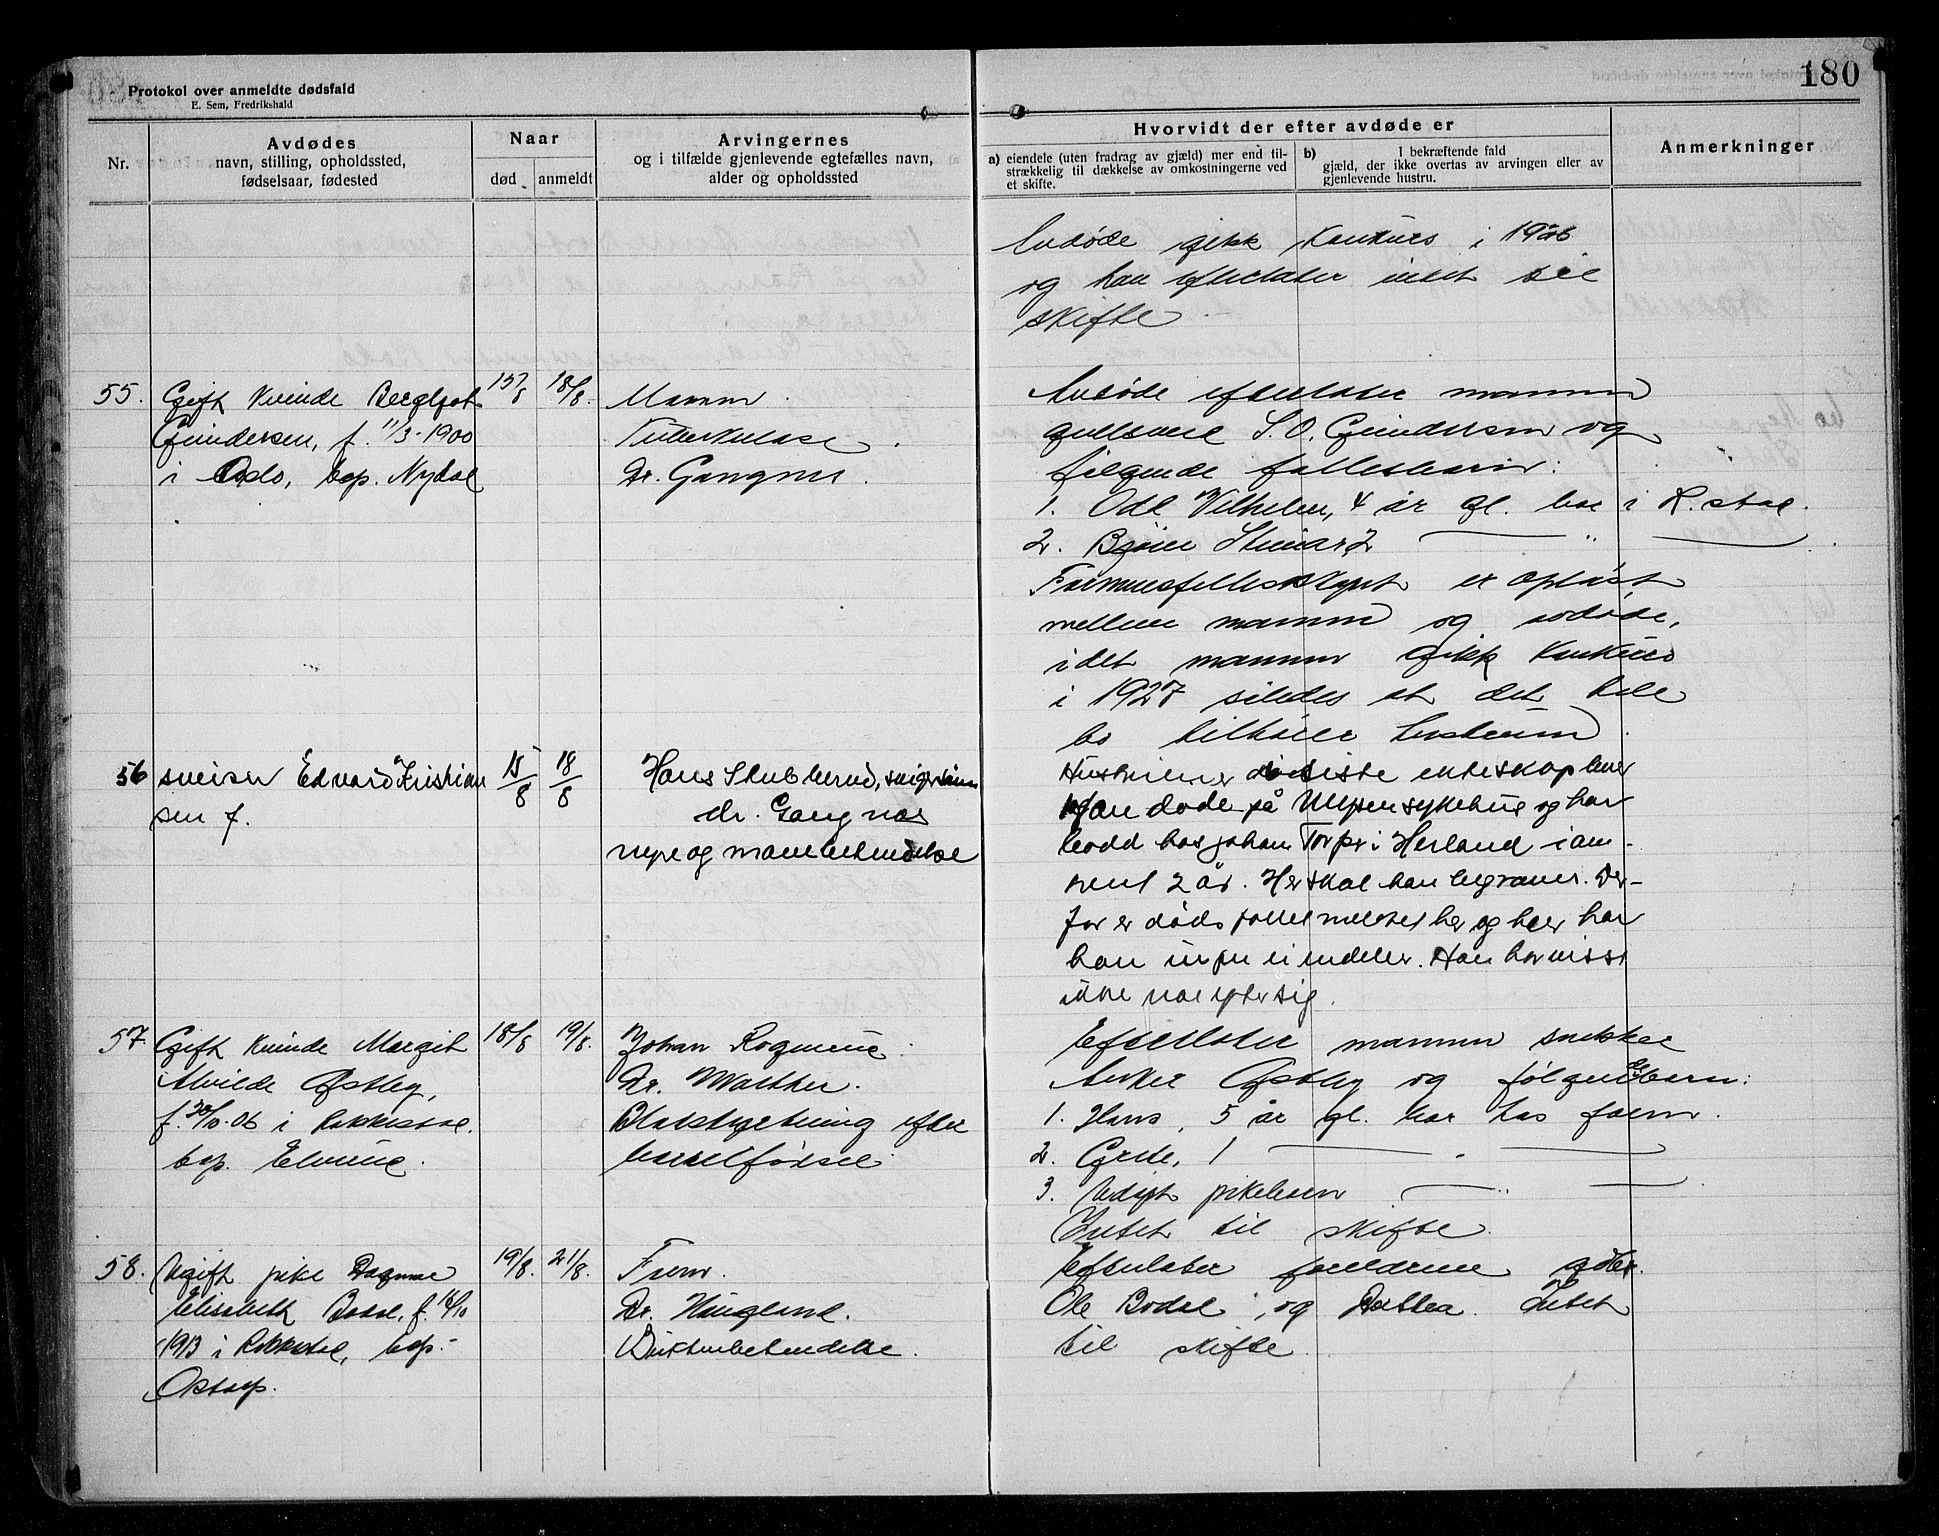 Protokol over anmeldte dødsfald
E. Sem, Fredrikshald
180
Nr.
Avdødes
navn, stilling, opholdssted,
fødselsaar, fødested
Naar
død anmeldt
Arvingernes
og i tilfælde gjenlevende egtefælles navn,
alder og opholdssted
Hvorvidt der efter avdøde er
a) eiendele (uten fradrag av gjæld) mer end til-
strækkelig til dækkelse av omkostningerne ved
et skifte.
b) I bekræftende fald
gjæld, der ikke overtas av arvingen eller av
gjenlevende hustru.
Anmerkninger
Avdøde gikk konkurs i
og han efterlater intet til
skifte
55. Gift kvinde Bergljot
Gundersen, f. 11/3-1900
i Oslo, bop. Nydal
15/8 18/8.
Mannen.
Tuberkulose.
Dr. Gangnes.
Avdøde efterlater mannen
S. O. Gundersen og
følgende fellesbarn:
1. Odd Vilhelm, 4 år gl. bor i R.stad.
2. Bjørn Steinar 2 — " —
Formuesfellesskapet er opløst
mellem mannen og avdøde,
idet mannen gikk konkurs
i 1927 således at det hele
bo tilhører hustruen.
56 sveiser Edvard Kristian
sen f.
15/8 18/8
Hans Stubberud, svigersønn
dr. Gangnæs
nyre og betendelse
Hustruen er død siste ekteskap lever
Han døde på sykehus og har
bodd hos Johan Torper i Herland i om-
trent 2 år. Her skal han begraves. Der-
for er dødsfallet meldt her og her har
han ingen eiendeler. Han har visst
ikke noe efter sig.
57. Gift kvinde Margit
Alvilde Østby,
f. 20/10-06 i Rakkestad.
bop. Elvene.
18/8 19/8.
Johan
Dr. Walther.
efter
barselfødsel.
Efterlater mannen snekker
Anker Østby og følgende barn:
1. Hans, 5 år gl. bor hos faren.
2. Grete, 1 — " —
3. Udøpt pikebarn — " —
Intet til skifte.
58. Ugift pike Dagmar
Elisabeth Bodal, f. 16/10
1913 i Rakkestad, bop.
19/8. 21/8.
Faren.
Dr.
betendelse.
Efterlater foreldrene gdbr.
Ole Bodal og Dorthea. Intet
til skifte.